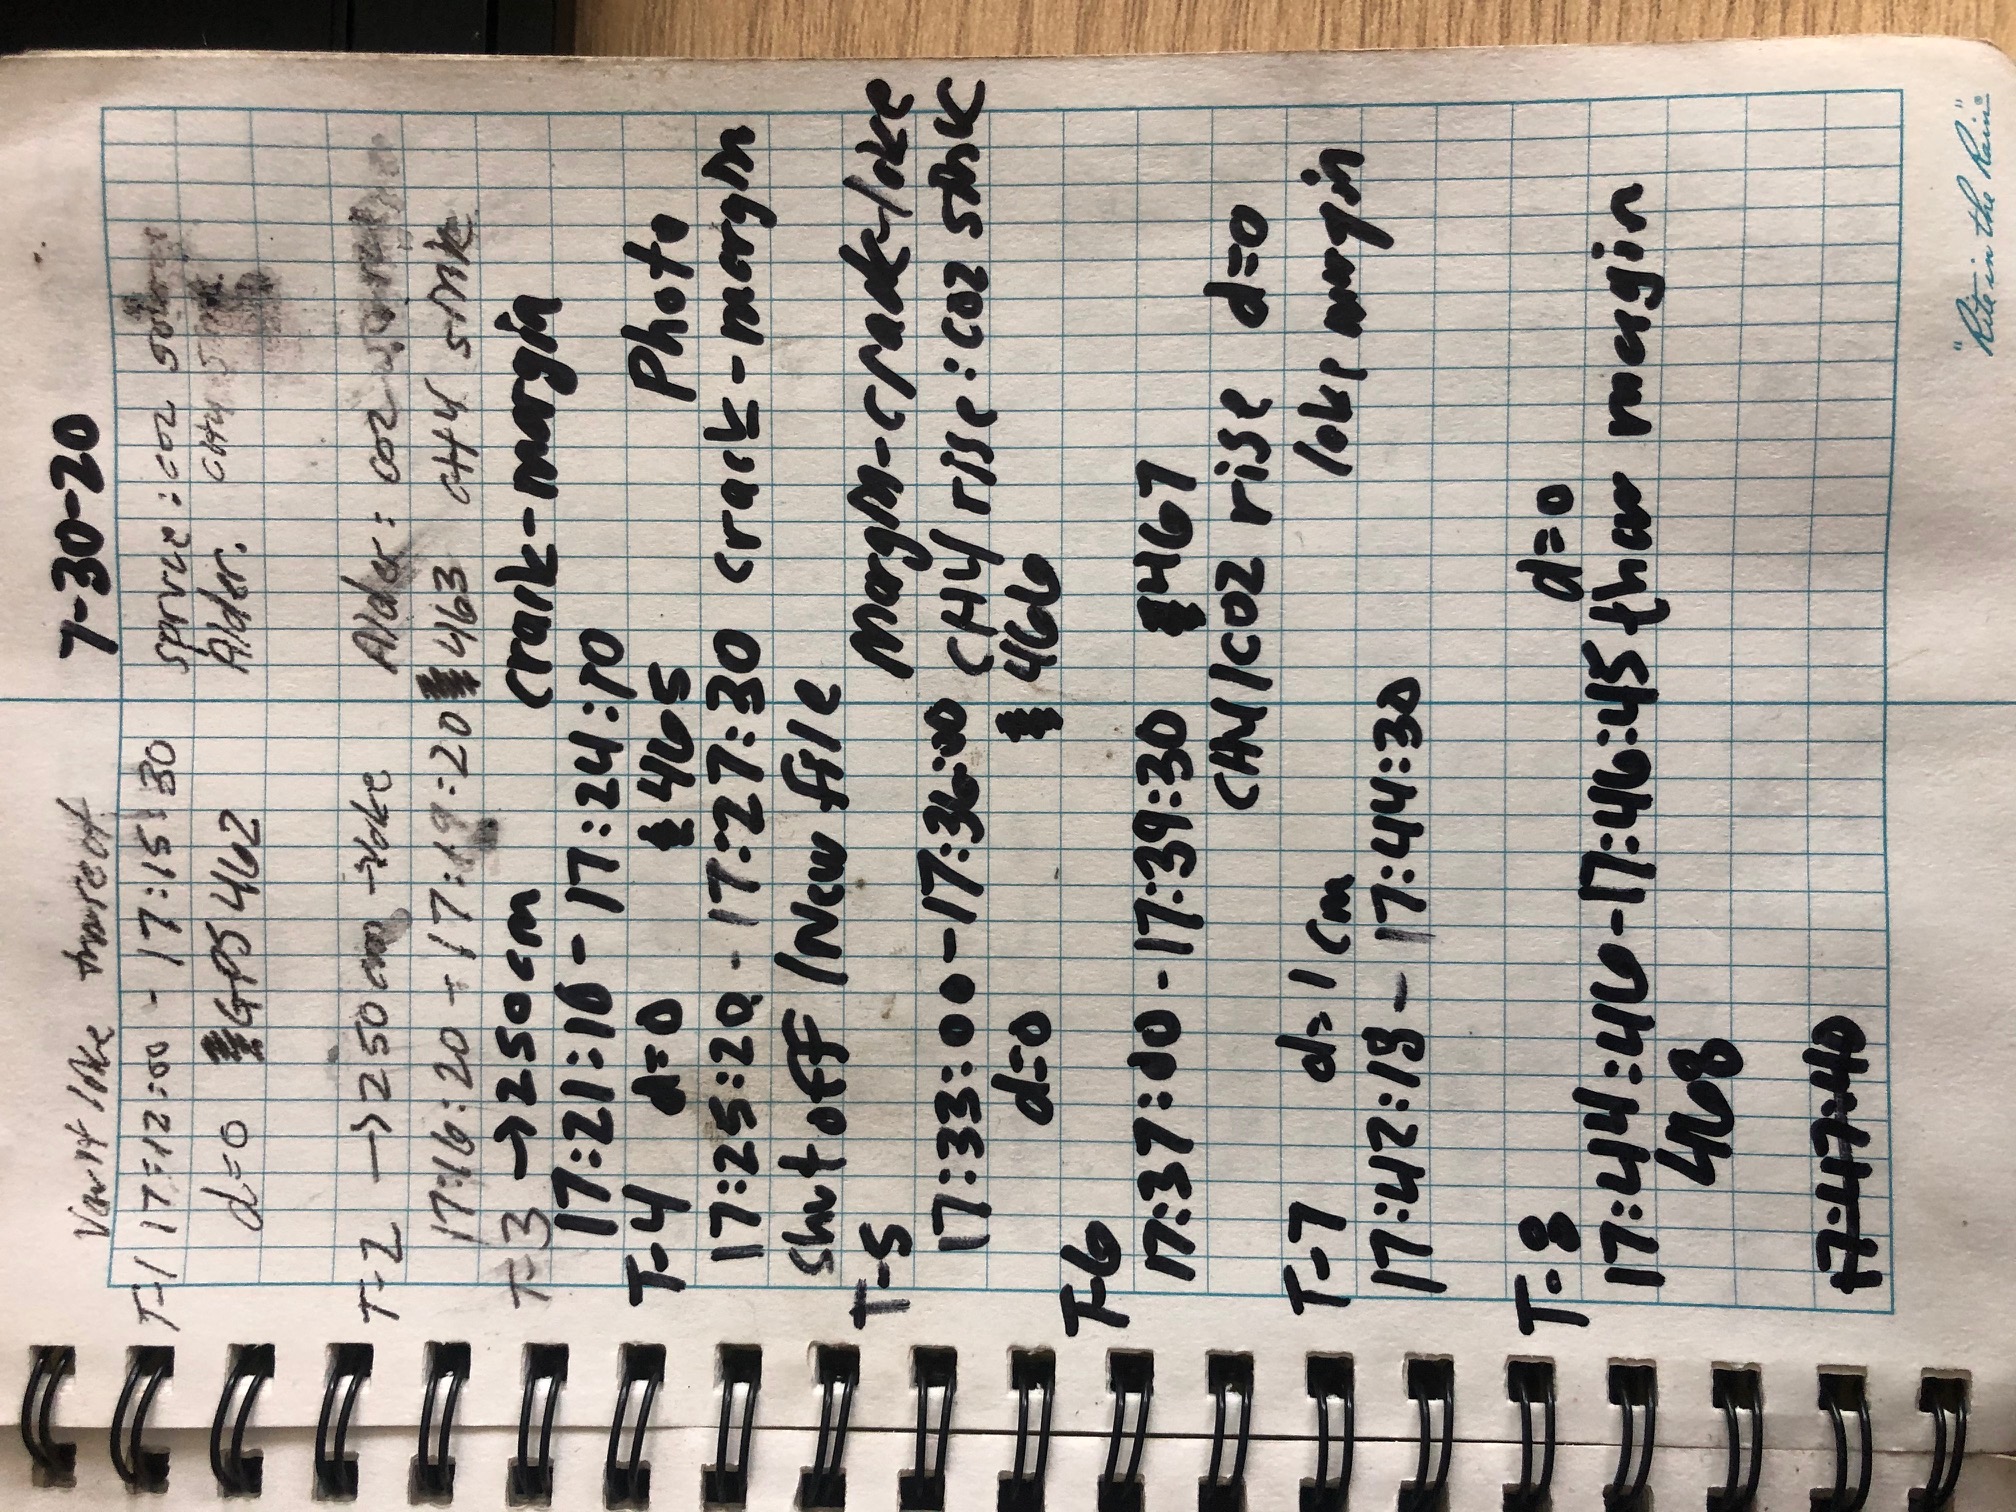 Vault lake transect 7-30-20
T-1 17:12:00 - 17:15:30 spruce: CO2 source
d=0 GPS 462 Alder. CH4 sink
T-2 →250cm →lake Alder: CO2 source
17:16:20 - 17:19:20 463 CH4 sink
T-3 →250cm crack-margin
17:21:10 - 17:24:10
T-4 d=0 465 Photo
17:25:20 - 17:27:30 crack-margin
Shut off / New file
T-5 Margin-crack-lake
17:33:00 - 17:36:00 CH4 rise: CO2 sink
d=0 466
T-6
17:37:00 - 17:39:30 467
CH4/CO2 rise d=0
T-7 d=1cm lake margin
17:42:18 - 17:44:30
T-8 d=0
17:44:46 - 17:46:45 thaw margin
468
17:47:40
"Rite in the Rain"®